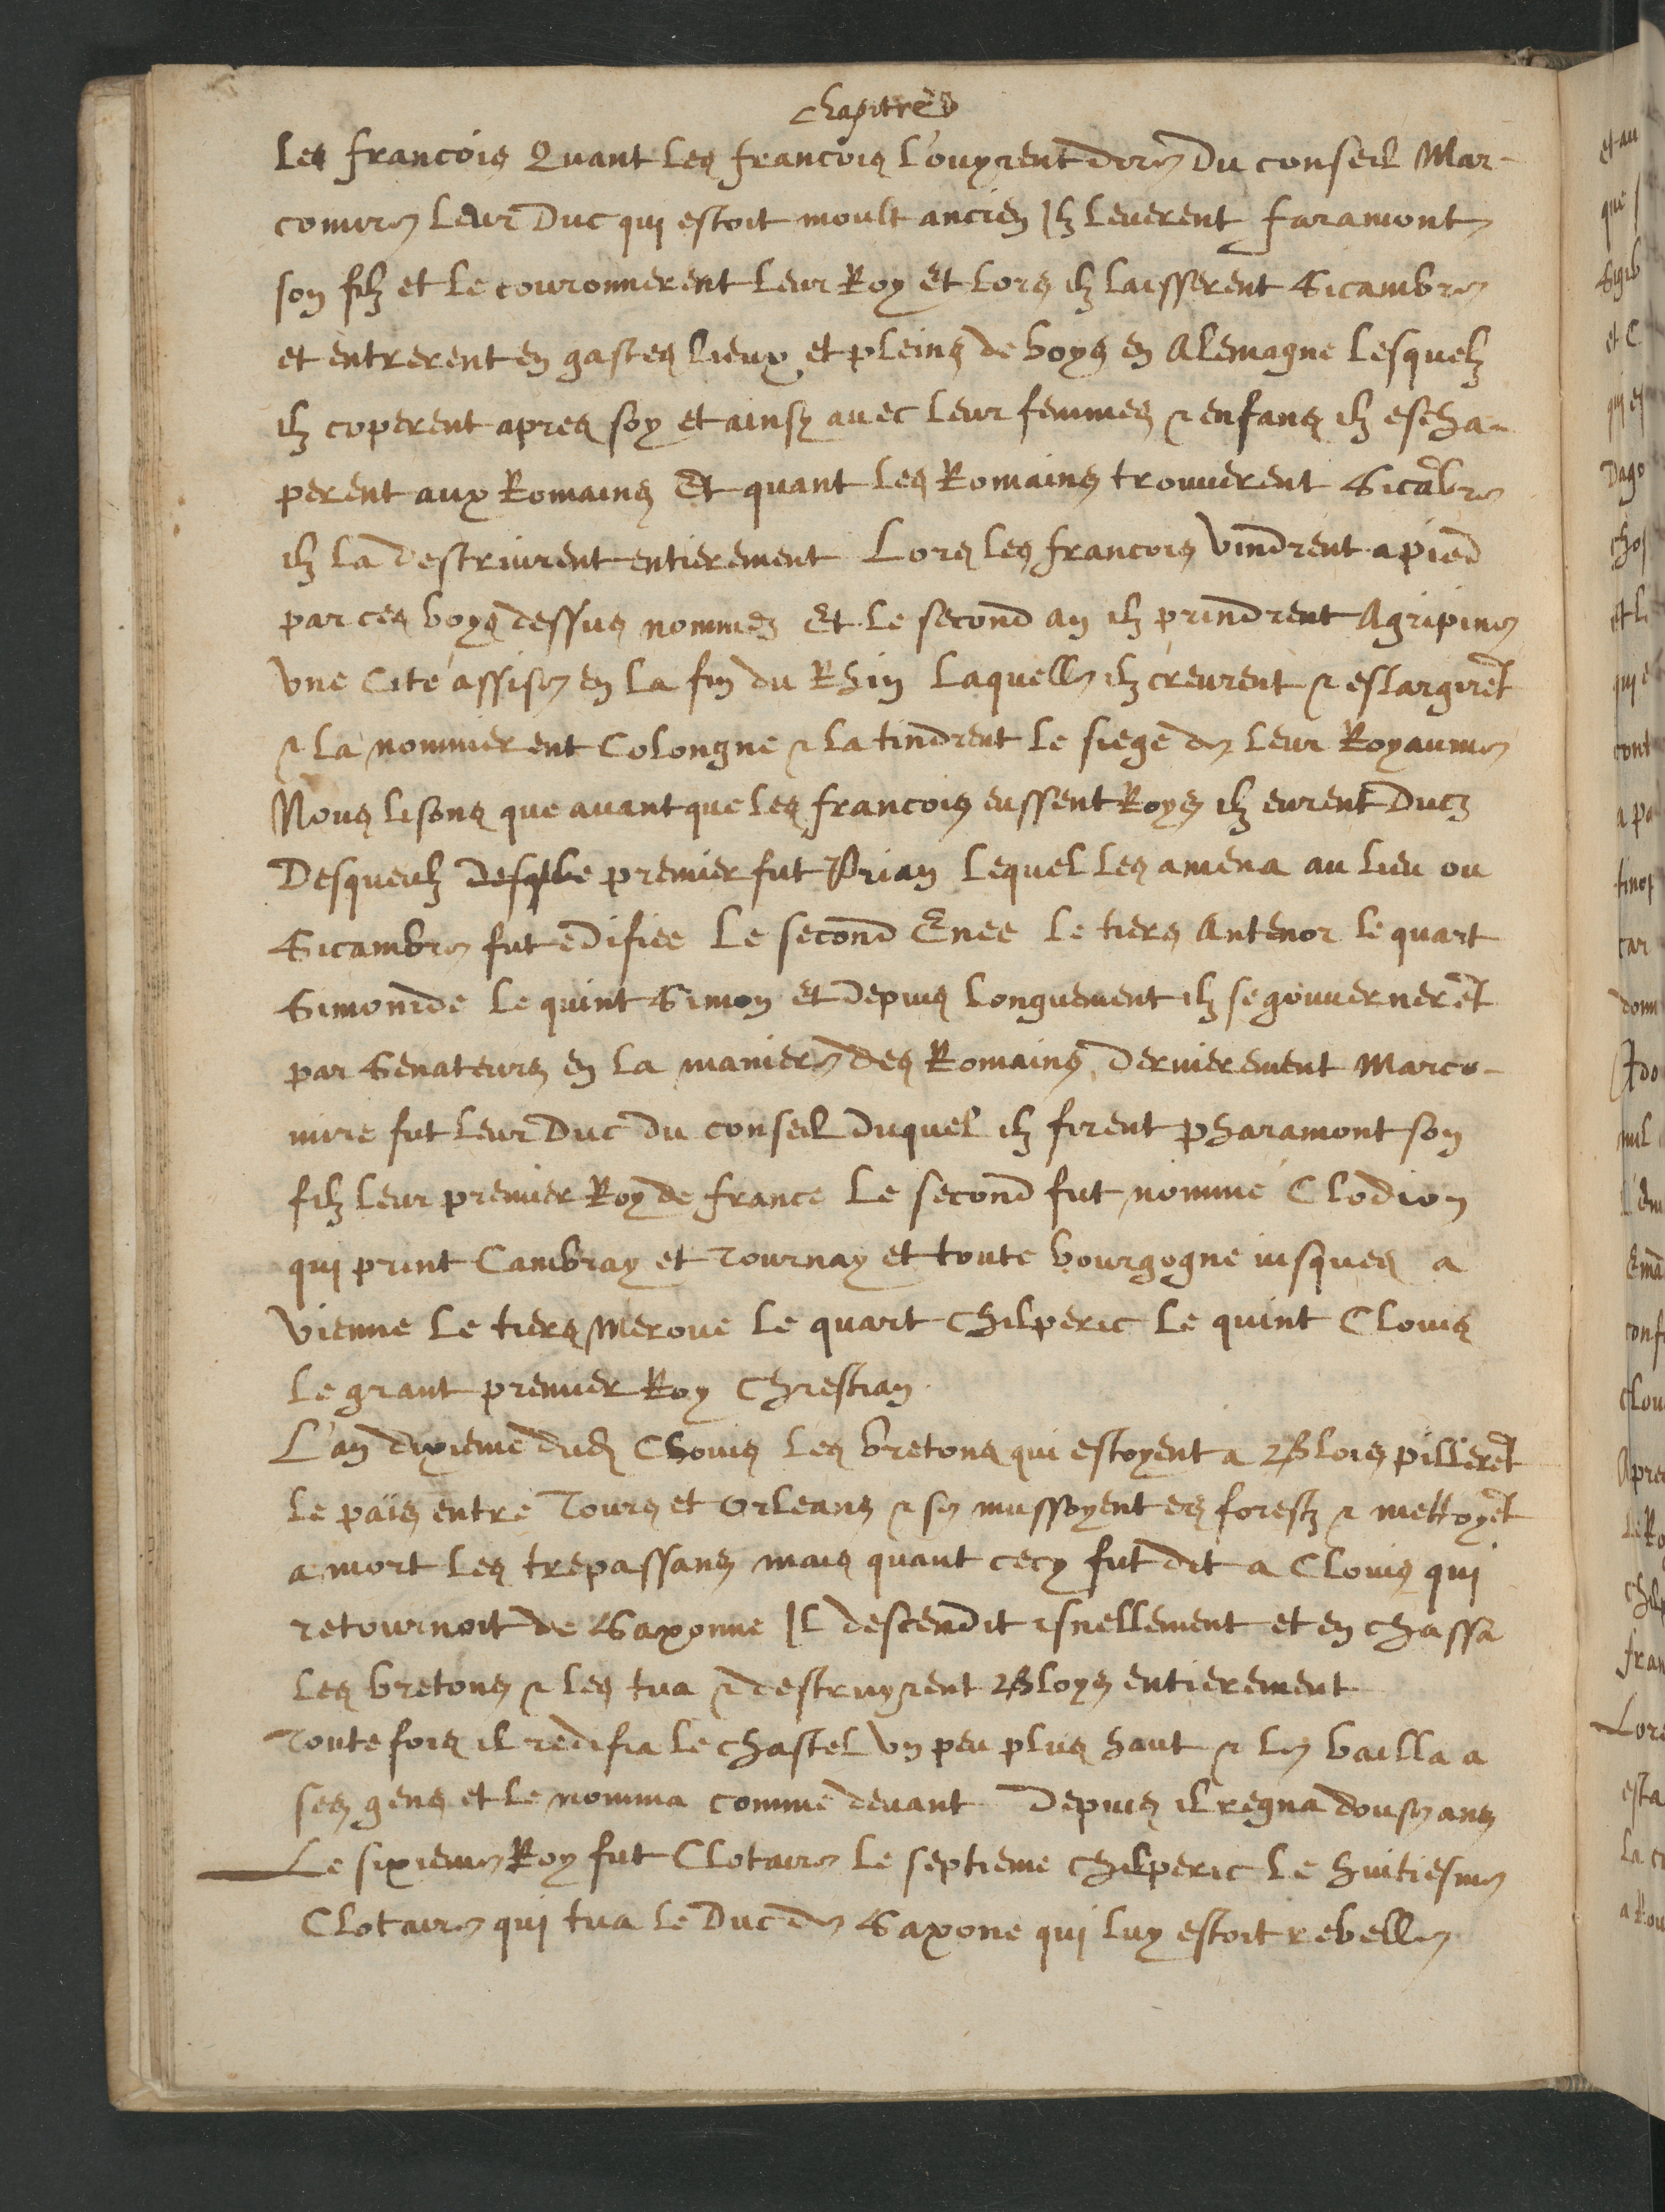 chapitre
les francois Quant les francois l'ouyrent dire du conseil Mar-
comire leur Duc qui estoit moult ancien Ilz leverent faramont
son filz et le couronnerent leur Roy Et lors ilz laisserent Sicambre
et entrerent en gastes lieux et pleins de boys en Alemagne lesquelz
ilz coperent apres soy et ainsy avec leur femmes & enfans ilz escha-
perent aux Romains Et quant les Romains trouverent Sicãbre
ilz la destriuirent entierement Lors les francois vindrent a pied
par ces boys dessus nommez Et le second an ilz prindrent Agripine
Vne Cité assise en la fin du Rhin laquelle ilz creurent & eslargirẽt
& la nommerent Colongne & la tindrent le siege de leur Royaume
Nous lisons que avant que les francois eussent Roys ilz eurent Ducz
Desqueulz premier fut Prian lequel les amena au lieu ou
Sicambre fut edifiee Le second Enee le tiers Antenor le quart
Simonide le quint Simon et Depuis longuement ilz se gouvernerẽt
par Senateurs en la maniere des Romains, Dernierement Marco-
mire fut leur Duc du conseil duquel ilz firent pharamont son
filz leur premier Roy de france Le second fut nommé Clodion
qui print Cambray et Tournay et toute bourgogne iusques a
Vienne Le tiers Meroue le quart Chilperic Le quint Clouis
le grant premier Roy Chrestian.
L'an dixieme dud Clouis les bretons qui estoyent a Blois pillerẽt
le païs entre Tours et Orleans & se mussoyent es forestz & mettoyẽt
a mort les trepassans mais quant cecy fut dit a Clouis qui
retournoit de Saxonne Il descendit isnellement et en chassa
les bretons & les tua & destruyrent Bloys entierement
Toute fois il redifia le chastel vn peu plus haut & le bailla a
ses gens et le nomma comme devant Depuis il regna douse ans
Le sixieme Roy fut Clotaire le septieme Chilperic Le huitiesme
Clotaire qui tua le Duc de Saxone qui luy estoit rebelle